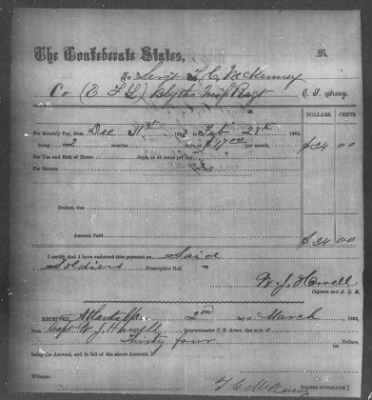 The Confederate States,
To Sergt T. C. McKenney
Co (E F G) Blythe Miss Regt C. S. Army.
DOLLARS. CENTS.
For Monthly Pay, from Dec 31st 186 to Feb 28th 186
being 2 months days, at $17 00 per month, $34 00
For Use and Risk of Horse days, at 40 cents per day,
For Bounty
Dollars, due
Amount Paid $34 00
I certify that I have endorsed this payment on Said
Soldiers Descriptive Roll.
W. J. Howell
Captain and A. Q. M.
RECEIVED, 2nd of March 186
from Capt W. J. Howell Quartermaster C. S. Army, the sum of
Thirty four Dollars,
being the Amount, and in full of the above Account.
Witness:
T C McKenney